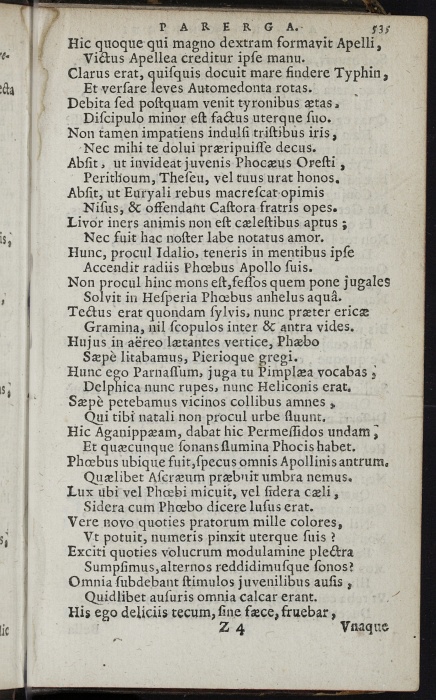 PARERGA. 535
Hic quoque qui magno dextram formavit Apelli,
Victus Apellea creditur ipſe manu.
Clarus erat, quiſquis docuit mare findere Typhin,
Et verſare leves Automedonta rotas.
Debita ſed poſtquam venit tyronibus ætas,
Diſcipulo minor eſt factus uterque ſuo.
Non tamen impatiens indulſi triſtibus iris,
Nec mihi te dolui præripuiſſe decus.
Abſit, ut invideat juvenis Phocæus Oreſti,
Perithoum, Theſeu, vel tuus urat honos.
Abſit, ut Euryali rebus macreſcat opimis
Niſus, & offendant Caſtora fratris opes.
Livor iners animis non eſt cæleſtibus aptus;
Nec fuit hac noſter labe notatus amor.
Hunc, procul Idalio, teneris in mentibus ipſe
Accendit radiis Phœbus Apollo ſuis.
Non procul hinc mons eſt, feſſos quem pone jugales
Solvit in Heſperia Phœbus anhelus aquâ.
Tectus erat quondam ſylvis, nunc præter ericæ
Gramina, nil ſcopulos inter & antra vides.
Hujus in aëreo lætantes vertice, Phæbo
Sæpè litabamus, Pierioque gregi.
Hunc ego Parnaſſum, juga tu Pimplæa vocabas;
Delphica nunc rupes, nunc Heliconis erat.
Sæpè petebamus vicinos collibus amnes,
Qui tibi natali non procul urbe fluunt.
Hic Aganippæam, dabat hic Permeſſidos undam,
Et quæcunque ſonans flumina Phocis habet.
Phœbus ubique fuit, ſpecus omnis Apollinis antrum.
Quælibet Aſcræum præbuit umbra nemus.
Lux ubi vel Phœbi micuit, vel ſidera cæli,
Sidera cum Phœbo dicere luſus erat.
Vere novo quoties pratorum mille colores,
Vt potuit, numeris pinxit uterque ſuis?
Exciti quoties volucrum modulamine plectra
Sumpſimus, alternos reddidimuſque ſonos?
Omnia ſubdebant ſtimulos juvenilibus auſis,
Quidlibet auſuris omnia calcar erant.
His ego deliciis tecum, ſine fæce, fruebar,
Z 4 Vnaque